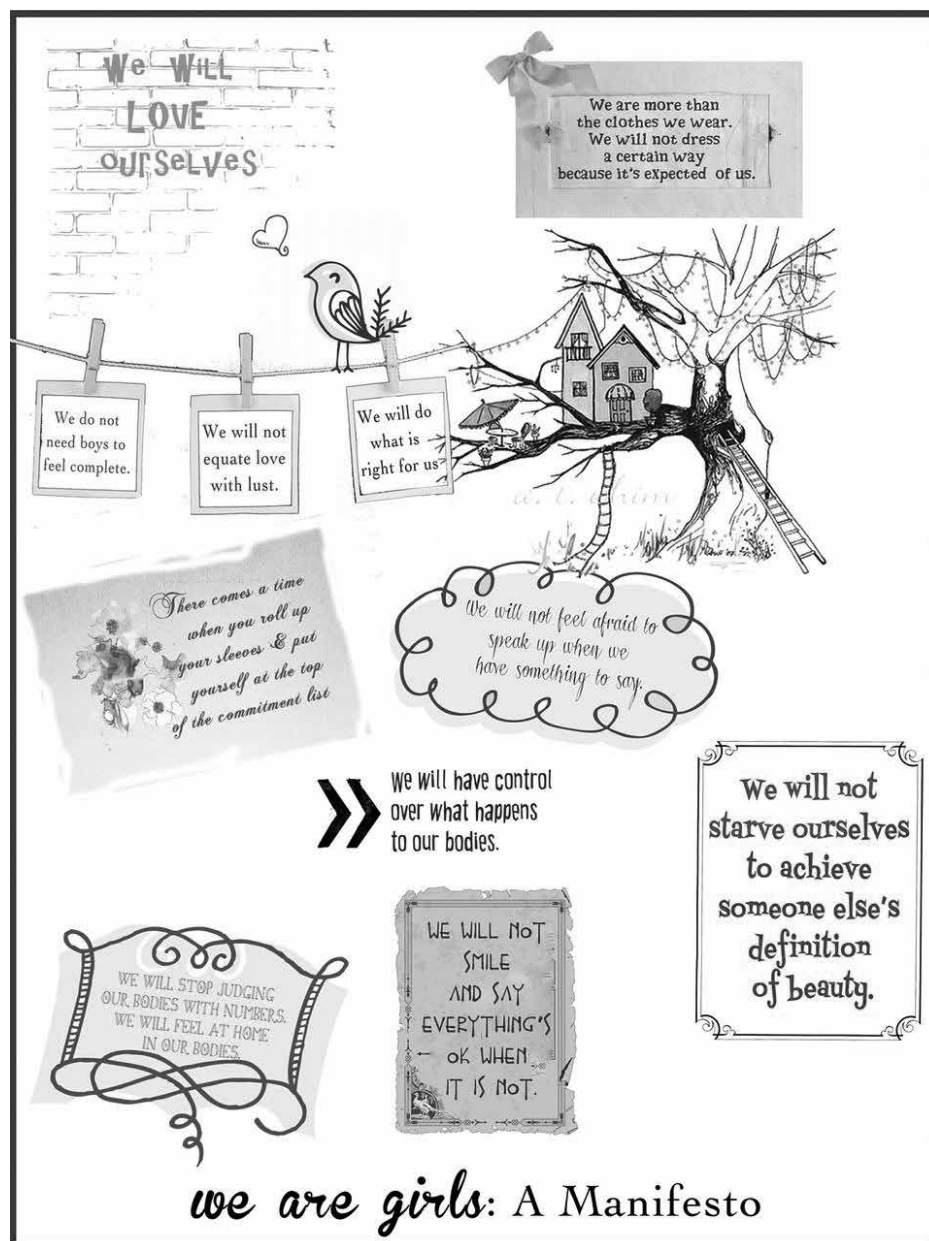 We WiLL
LOVE
ourSeLVeS
We are more than
the clothes we wear.
We will not dress
a certain way
because it's expected of us.
We do not
need boys to
feel complete.
We will not
equate love
with lust.
We will do
what is
right for us
There comes a time
when you roll up
your sleeves & put
yourself at the top
of the commitment list
We will not feel afraid to
speak up when we
have something to say.
We will have control
over what happens
to our bodies.
We will not
starve ourselves
to achieve
someone else's
definition
of beauty.
WE WILL STOP JUDGING
OUR BODIES WITH NUMBERS.
WE WILL FEEL AT HOME
IN OUR BODIES.
WE WILL NOT
SMILE
AND SAY
EVERYTHING'S
OK WHEN
IT IS NOT.
we are girls: A Manifesto